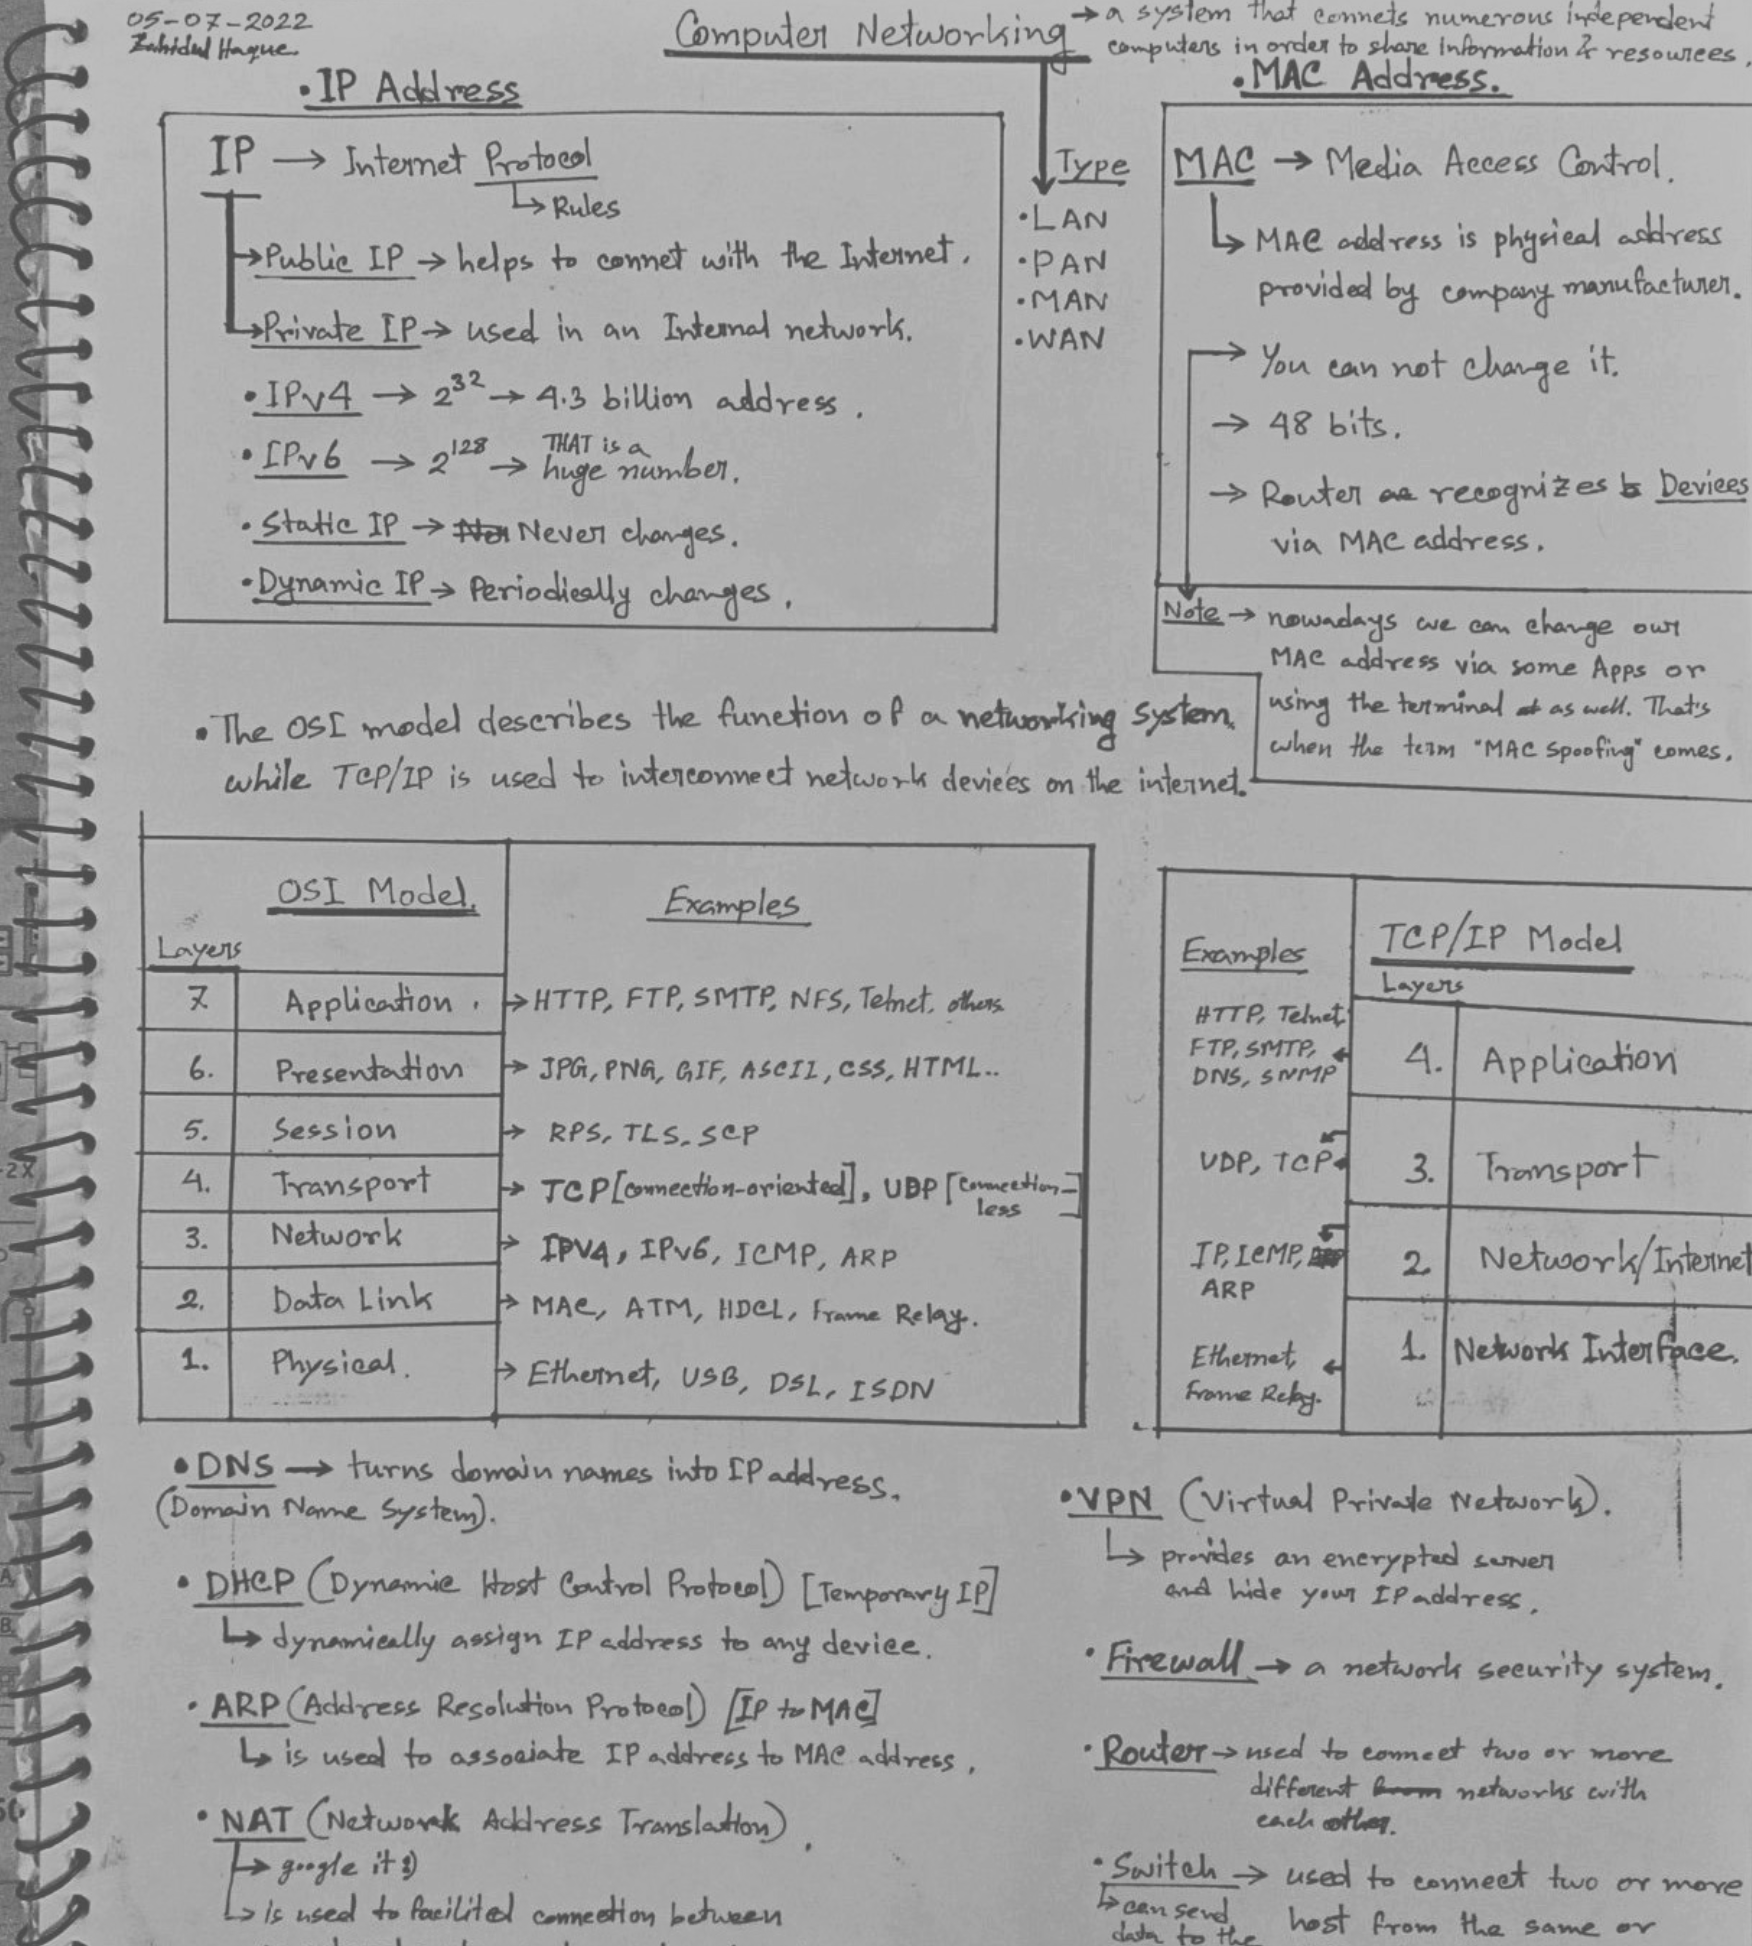 05-07-2022
Zahidul Haque
Computer Networking → a system that connets numerous independent
computers in order to share information & resources.
Type
•LAN
•PAN
•MAN
•WAN
•IP Address
IP → Internet Protocol
↳ Rules
→Public IP → helps to connet with the Internet.
→Private IP → used in an Internal network.
•IPv4 → 2^32 → 4.3 billion address.
•IPv6 → 2^128 → THAT is a
huge number.
•Static IP → Never changes.
•Dynamic IP → Periodically changes.
•MAC Address.
MAC → Media Access Control.
↳ MAC address is physical address
provided by company manufacturer.
→ You can not change it.
→ 48 bits.
→ Router recognizes Devices
via MAC address.
Note → nowadays we can change our
MAC address via some Apps or
using the terminal as well. That's
when the term "MAC Spoofing" comes.
•The OSI model describes the function of a networking system.
while TCP/IP is used to interconnect network devices on the internet.
OSI Model. Examples
Layers
7. Application. → HTTP, FTP, SMTP, NFS, Telnet, others.
6. Presentation → JPG, PNG, GIF, ASCII, CSS, HTML..
5. Session → RPS, TLS, SCP
4. Transport → TCP [connection-oriented], UDP [connection-
less]
3. Network → IPV4, IPv6, ICMP, ARP
2. Data Link → MAC, ATM, HDCL, Frame Relay.
1. Physical. → Ethernet, USB, DSL, ISDN
Examples TCP/IP Model
Layers
HTTP, Telnet,
FTP, SMTP, ← 4. Application
DNS, SNMP
UDP, TCP ← 3. Transport
IP, ICMP, ← 2. Network/Internet
ARP
Ethernet, ← 1. Network Interface.
Frame Relay.
•DNS → turns domain names into IP address.
(Domain Name System).
•DHCP (Dynamic Host Control Protocol) [Temporary IP]
↳ dynamically assign IP address to any device.
•ARP (Address Resolution Protocol) [IP to MAC]
↳ is used to assosiate IP address to MAC address.
•NAT (Network Address Translation).
→ google it :)
↳ is used to facilited connection between
•VPN (Virtual Private Network).
↳ provides an encrypted server
and hide your IP address.
•Firewall → a network security system.
•Router → used to connect two or more
different networks with
each other.
•Switch → used to connect two or more
host from the same or
↳ can send
data to the